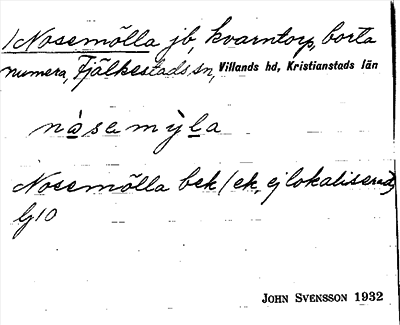 /Nosemölla jb, kvarntorp, borta
numera, Fjälkestads sn, Villands hd, Kristianstads län
nàsemỳla
Nosemölla bek (ek, ej lokaliserad)
G10
JOHN SVENSSON 1932